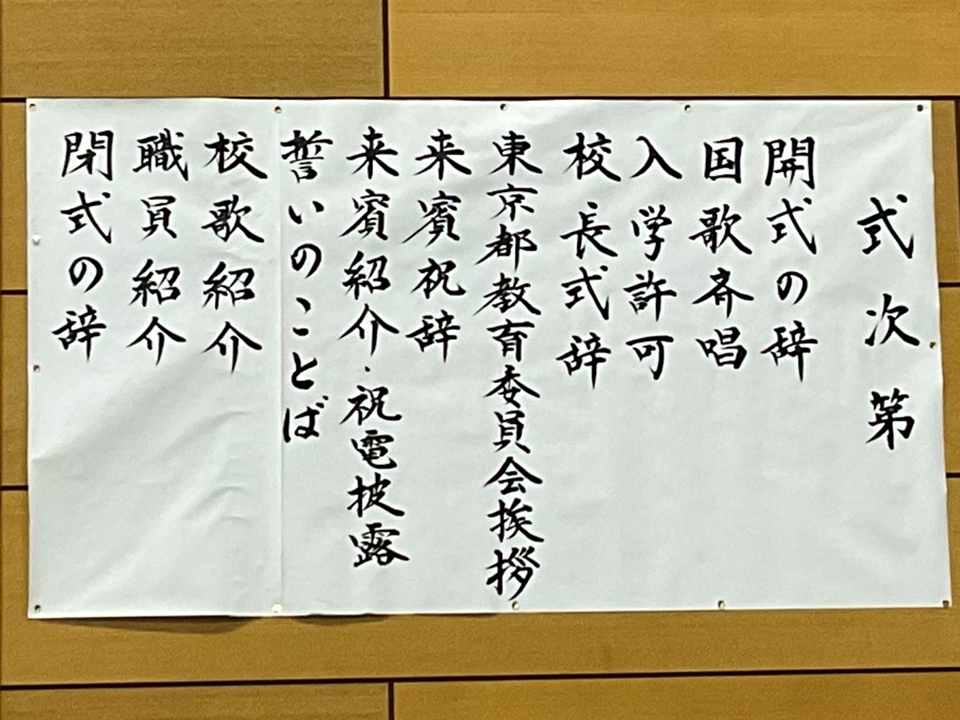 式次第
開式の辞
国歌斉唱
入学許可
校長式辞
東京都教育委員会挨拶
来賓祝辞
来賓紹介・祝電披露
誓いのことば
校歌紹介
職員紹介
閉式の辞